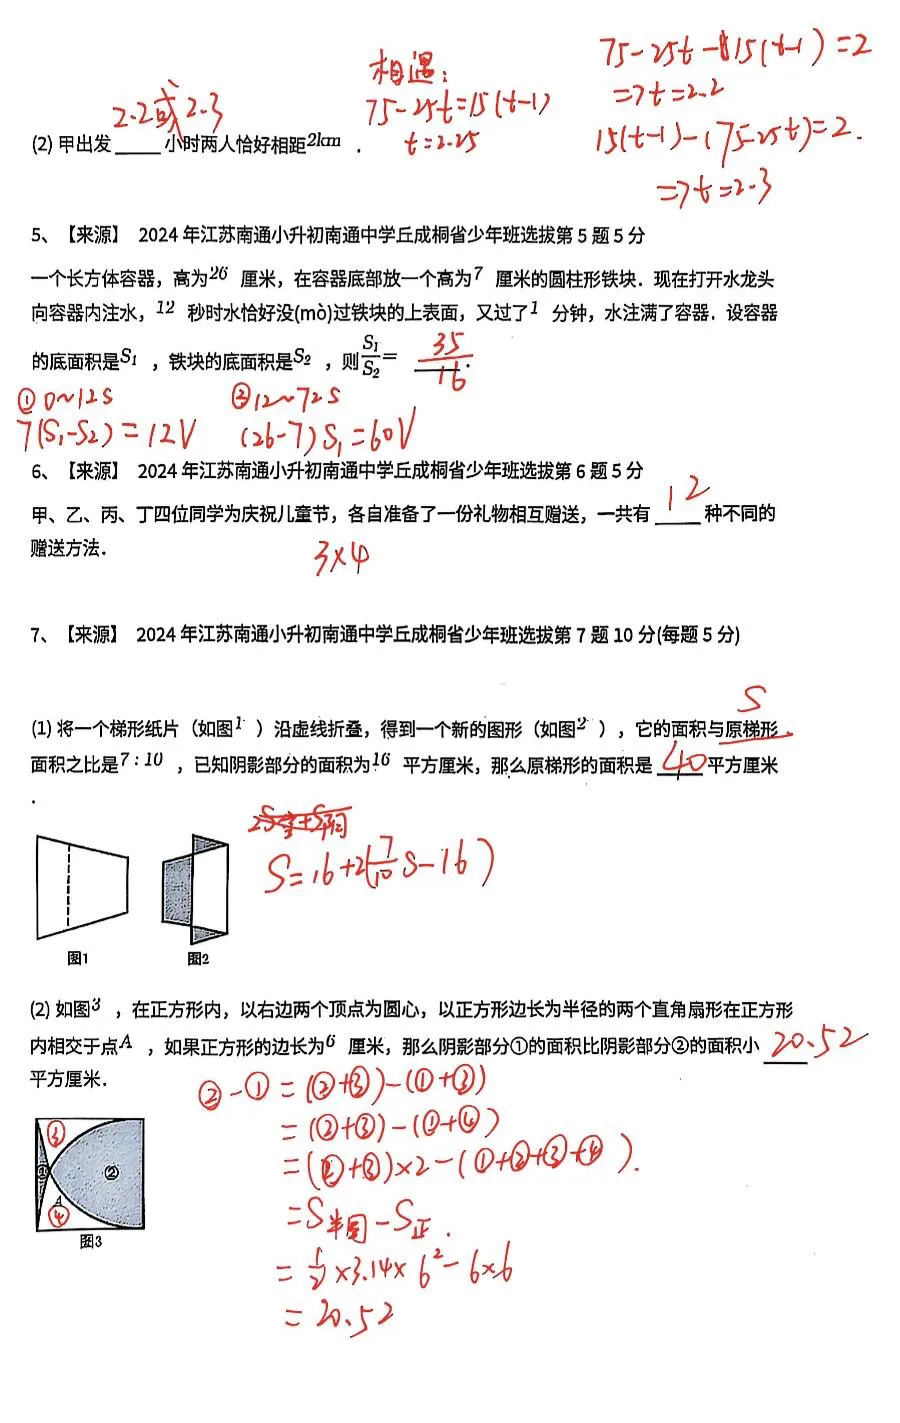 相遇：
75-25t=15(t-1)
t=2.25
75-25t-15(t-1)=2
=>t=2.2
15(t-1)-(75-25t)=2.
=>t=2.3
2.2或2.3
(2) 甲出发____小时两人恰好相距2km．
5、【来源】 2024年江苏南通小升初南通中学丘成桐省少年班选拔第5题5分
一个长方体容器，高为26 厘米，在容器底部放一个高为7 厘米的圆柱形铁块．现在打开水龙头
向容器内注水，12 秒时水恰好没(mò)过铁块的上表面，又过了1 分钟，水注满了容器．设容器
的底面积是S1 ，铁块的底面积是S2 ，则S1/S2= 35/16．
① 0~12s ②12~72s
7(S1-S2)=12V (26-7)S1=60V
6、【来源】 2024年江苏南通小升初南通中学丘成桐省少年班选拔第6题5分
甲、乙、丙、丁四位同学为庆祝儿童节，各自准备了一份礼物相互赠送，一共有 12 种不同的
赠送方法．
3×4
7、【来源】 2024年江苏南通小升初南通中学丘成桐省少年班选拔第7题10分(每题5分)
S
(1) 将一个梯形纸片（如图1 ）沿虚线折叠，得到一个新的图形（如图2 ），它的面积与原梯形
面积之比是7:10 ，已知阴影部分的面积为16 平方厘米，那么原梯形的面积是 40 平方厘米
．
S=16+2(7/10 S-16)
图1 图2
(2) 如图3 ，在正方形内，以右边两个顶点为圆心，以正方形边长为半径的两个直角扇形在正方形
内相交于点A ，如果正方形的边长为6 厘米，那么阴影部分①的面积比阴影部分②的面积小 20.52
平方厘米．
②-①=(②+③)-(①+③)
=(②+③)-(①+④)
=(②+③)×2-(①+②+③+④).
=S半圆-S正.
=1/2×3.14×6²-6×6
=20.52
③
① ②
A
④
图3